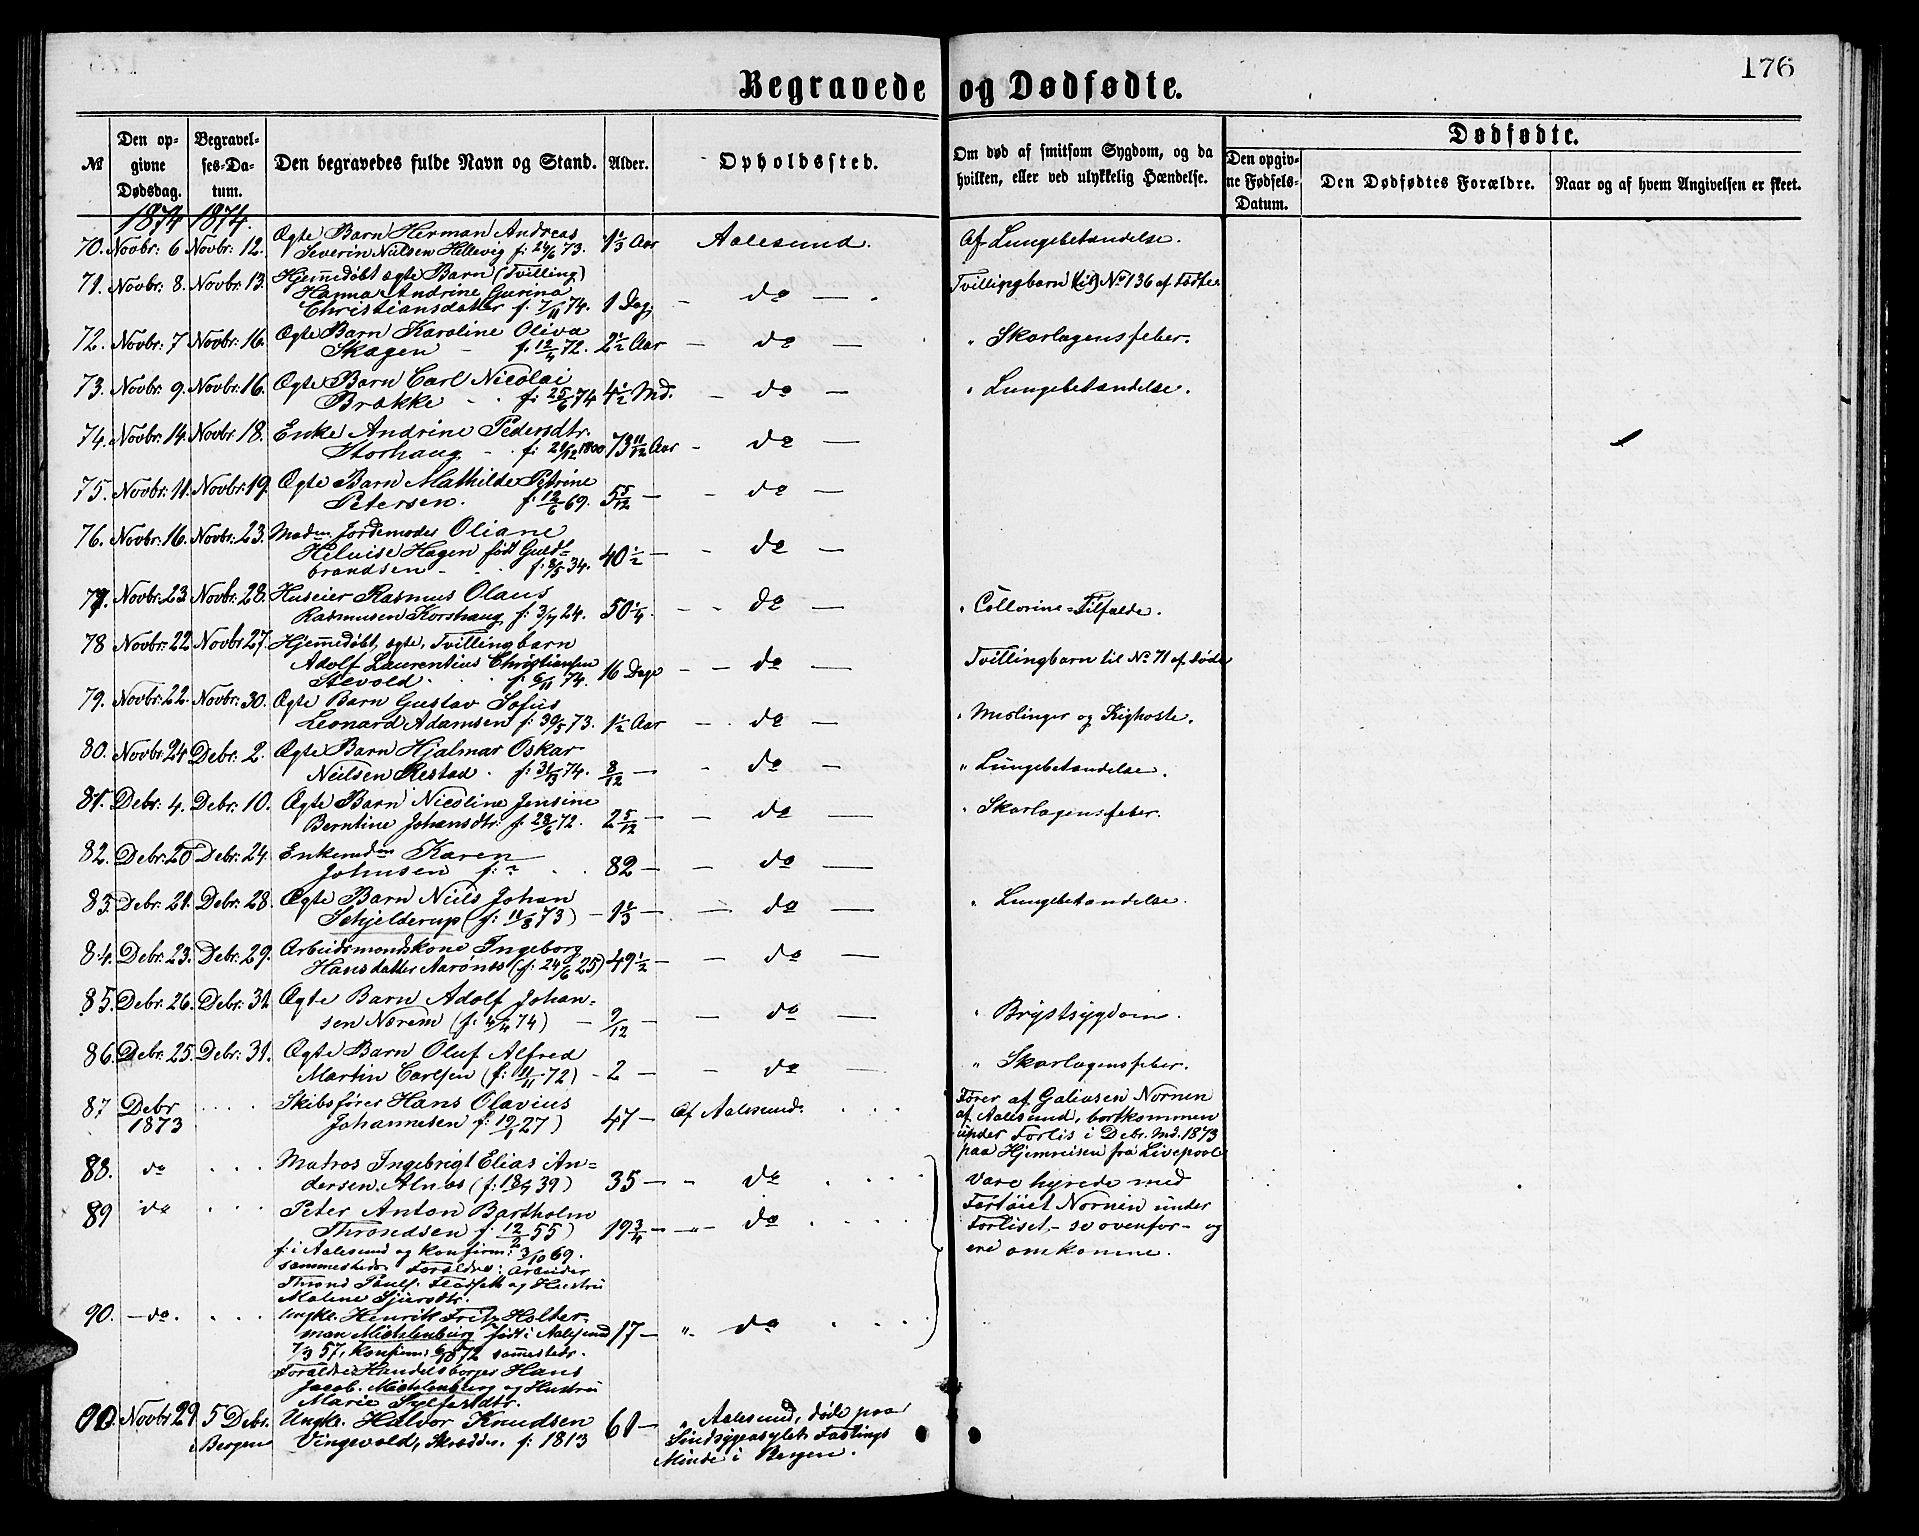 176
Begravede og Dødfødte.
№
Den opgivne Dødsdag.
Begravelses-Datum.
Den begravedes fulde Navn og Stand.
Alder.
Opholdssted.
Om død af smitsom Sygdom, og da hvilken, eller ved ulykkelig Hændelse.
Dødfødte.
Den opgivne Fødsels-Datum.
Den Dødfødtes Forældre.
Naar og af hvem Angivelsen er skeet.
1874 1874.
Ægte Barn Herman Andreas
70. Novbr: 6 Novbr: 12. Severin Nielsen Hellevig f: 29/6 73. 1 1/3 Aar Aalesund. Af Lungebetændelse.
71. Novbr: 8. Novbr: 13. Hjemmedøbt ægte Barn (Tvilling)
Hanna Andrine Gurina
Christiansdatter f. 7/11 74. 1 Dag - do - Tvillingbarn (til) No 136 af Fødte
72. Novbr: 7 Novbr: 16. Ægte Barn Karoline Oliva
Skagen - f. 12/4 72. 2 1/2 Aar - do - " Skarlagensfeber.
73. Novbr: 9. Novbr: 16. Ægte Barn Carl Nicolai
Brække - f: 25/6 74 4 1/2 Md. - do - " Lungebetændelse.
74. Novbr: 14. Novbr 18. Enke Andrine Pedersdtr.
Storhaug - f: 21/12 1800 73 11/12 Aar - do -
75. Novbr: 11. Novbr: 19. Ægte Barn Mathilde Petrine
Petersen. f: 12/6 69. 5 5/12 - - do -
76. Novbr: 16. Novbr: 23. Madm Jordemoder Oliane
Heluise Hagen født Guld-
brandsen - f: 8/5 34. 40 1/2 - - do -
77. Novbr: 23 Novbr: 28. Huseier Rasmus Olaus
Rasmusen Korshaug f: 3/7 24. 50 1/4 - - do - " Collorine-Tilfælde.
78 Novbr: 22 Novbr 27. Hjemmedøbt, ægte, Tvillingbarn
Adolf Laurentius Christiansen
Alvold. f: 6/11 74. 16 Dage - - do - Tvillingbarn til No 71 af Døde
79. Novbr: 22. Novbr: 30. Ægte Barn Gustav Sofus
Leonard Adamsen f: 30/5 73. 1 1/2 Aar - do - " Meslinger og Kighoste.
80. Novbr: 24 Debr: 2. Ægte Barn Hjalmar Oskar
Nielsen Restad. f: 31/3 74. 8/12 - - do - " Lungebetændelse.
81. Debr: 4. Debr: 10. Ægte Barn Nicoline Jensine
Berntine Johansdtr: f: 28/6 72. 2 5/12 - - do - " Skarlagensfeber.
82. Debr: 20 Debr: 24. Enkemadm Karen
Johnsen f: ? 82 - - do -
83 Debr: 21. Debr: 28. Ægte Barn Niels Johan
Schjelderup (f: 11/8 73) - 1 1/3 - - do - " Lungebetændelse.
84. Debr: 23. Debr: 29. Arbeidsmandskone Ingeborg
Hansdatter Aarønes (f: 24/6 25) 49 1/2 - - do -
85. Debr: 26. Debr: 31. Ægte Barn Adolf Johan-
sen Nærem (f: 4/4 74) - 9/12 - do - " Brystsygdom.
86. Debr: 25. Debr: 31. Ægte Barn Oluf Alfred
Martin Carlsen (f: 11/11 72) - 2 - - do - " Skarlagensfeber.
87 Debr 1873 Skibsfører Hans Olavius
Johannesen f: 19/1 27) 47 - Af Aalesund.
Fører af Galiasen Nornen
af Aalesund, bortkommen
under Forlis i Debr. Md. 1873
paa Hjemreisen fra Livepool
88. do Matros Ingebrigt Elias An-
dersen Alnæs (f: 18/9 39) 35 - - do
89 do Peter Anton Bartholm
Throndsen f: 12/2 55) 19 3/4 - - do
Vare hyrede med
Fartøiet Nornen under
Forliset, - se ovenfor - og
ere omkomne.
f: i Aalesund og konfirm: 3/10 69.
sammesteds Forældre: Arbeider
Thrond Paulf. Flatseth og Hustru
Malene Sjursdtr.
90. - do. Ungk. Henrik Fritz Holter-
man Michelenburg født i Aalesund 17 - " do
7/3 57, konfirm: 6/10 72 sammesteds.
Forældre: Handelsborger Hans
Jacob Michelenburg og Hustru
Marie Sylfestdtr.
90. Novbr 29 5 Debr. i Bergen Ungk. Halvor Knudsen
Vingevold, Skrædder. f: 1813 61 - " Aalesund, døde paa
Sindsygeasylet Fastings
Minde i Bergen.